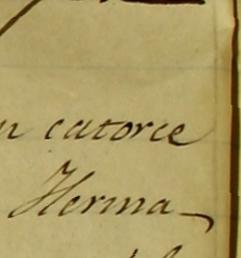 n catorce
Herma-